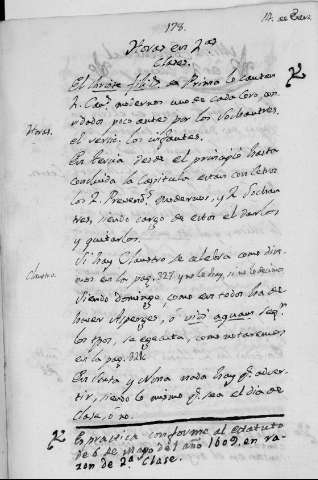 178.
12. de Enero.
Horas en 2.as
Clases.
El Invite filij. a Prima lo cantan
2. Cap.s modernos uno de cada Coro, con
vidados poco antes por los Sochantres,
el versic. los infantes.
Horas.
En Tercia desde el principio hasta
concluida la Capitula estan con Cetros
los 2. Prevend.s modernos, y 2 Sochan
tres, siendo cargo de estos el darlos
y quitarlos.
Claustro
Si hay Claustro se celebra como dixi
mos en la pag. 327 y no le hay, si no lo decimos
Siendo domingo, como en todos ha de
haver Asperges, ô vidi aquam seg.n
los tpos, se egecuta, como notaremos
en la pag. 326
En Sexta y Nona nada hay q.e adver
tir, siendo lo mismo q.e sea el dia de
Clase, ô no.
En practica conforme al estatuto
de 6 de Mayo del año 1609, en ra
zon de 2.ª Clase.